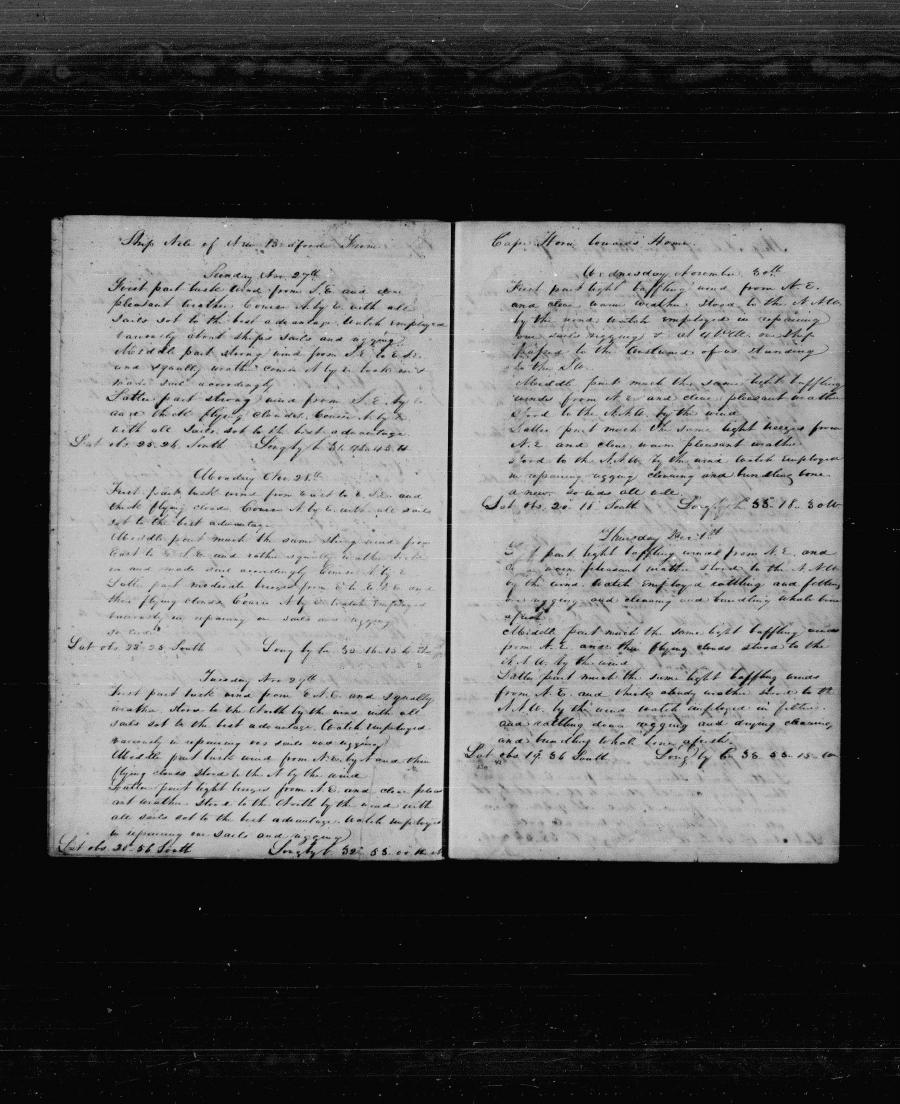 Ship Nile of New Bedford From
Sunday Nov 27th
First part brisk wind from S.E. and
pleasant weather Course N by E with all
sails set to the best advantage Watch employed
variously about ships sails and rigging
Middle part strong wind from S.E. to E.S.E.
and squally weather course N by E took in &
made sail accordingly
Latter part strong wind from S.E. by E
and thick flying clouds. Course N by E
with all sails set to the best advantage
Lat obs 25.26 South Long by
Monday Nov 28th
First part brisk wind from East to E.S.E. and
thick flying clouds Course N by E with all sails
set to the best advantage
Middle part much the same strong wind from
East to E.S.E and rather squally weather took
in and made sail accordingly Course N by E
Latter part moderate breezes from E to E.S.E and
thin flying clouds Course N by E Watch Employed
variously in repairing on sails and rigging
so ends
Lat obs 22 23 South Long by
Tuesday Nov 29th
First part brisk wind from E.N.E. and squally
weather Stood to the North by the wind with all
sails set to the best advantage Watch employed
variously in repairing our sails and rigging
Middle part brisk wind from N.E. by N and thin
flying clouds Stood to the N by the wind
Latter part light breezes from N.E. and clear pleas
ant weather Stood to the North by the wind with
all sails set to the best advantage Watch employed
in repairing our sails and rigging
Lat obs 21 36 South Long by 32 53
Cape Horn towards Home
Wednesday November 30th
First part light baffling wind from N.E.
and clear warm weather Stood to the N.N.W.
by the wind watch employed in repairing
our sails rigging & at 4 one Ship
passed to the Eastward of us Standing
to the S.W.
Middle part much the same light baffling
winds from N.E and clear pleasant weather
Stood to the N.N.W. by the wind
Latter part much the same light breezes from
N.E. and clear warm pleasant weather
Stood to the N.N.W. by the wind Watch Employed
in repairing rigging cleaning and bundling bone
a new So ends all well
Lat obs. 20 18 South Long 33 18 30 W
Thursday Dec 1st
First part light baffling winds from N.E. and
warm pleasant weather Stood to the N.N.W
by the wind. Watch Employed rattling and fitting
our rigging and cleaning and bundling whale bone
afresh
Middle part much the same light baffling winds
from N.E. and thin flying clouds stood to the
N.N.W. by the wind
Latter part much the same light baffling winds
from N.E. and thick cloudy weather stood to the
N.N.W. by the wind watch employed in fitting
and rattling down rigging and drying cleaning
and bundling whale bone afresh
Lat obs 19 36 South Long by 33 53 15 W